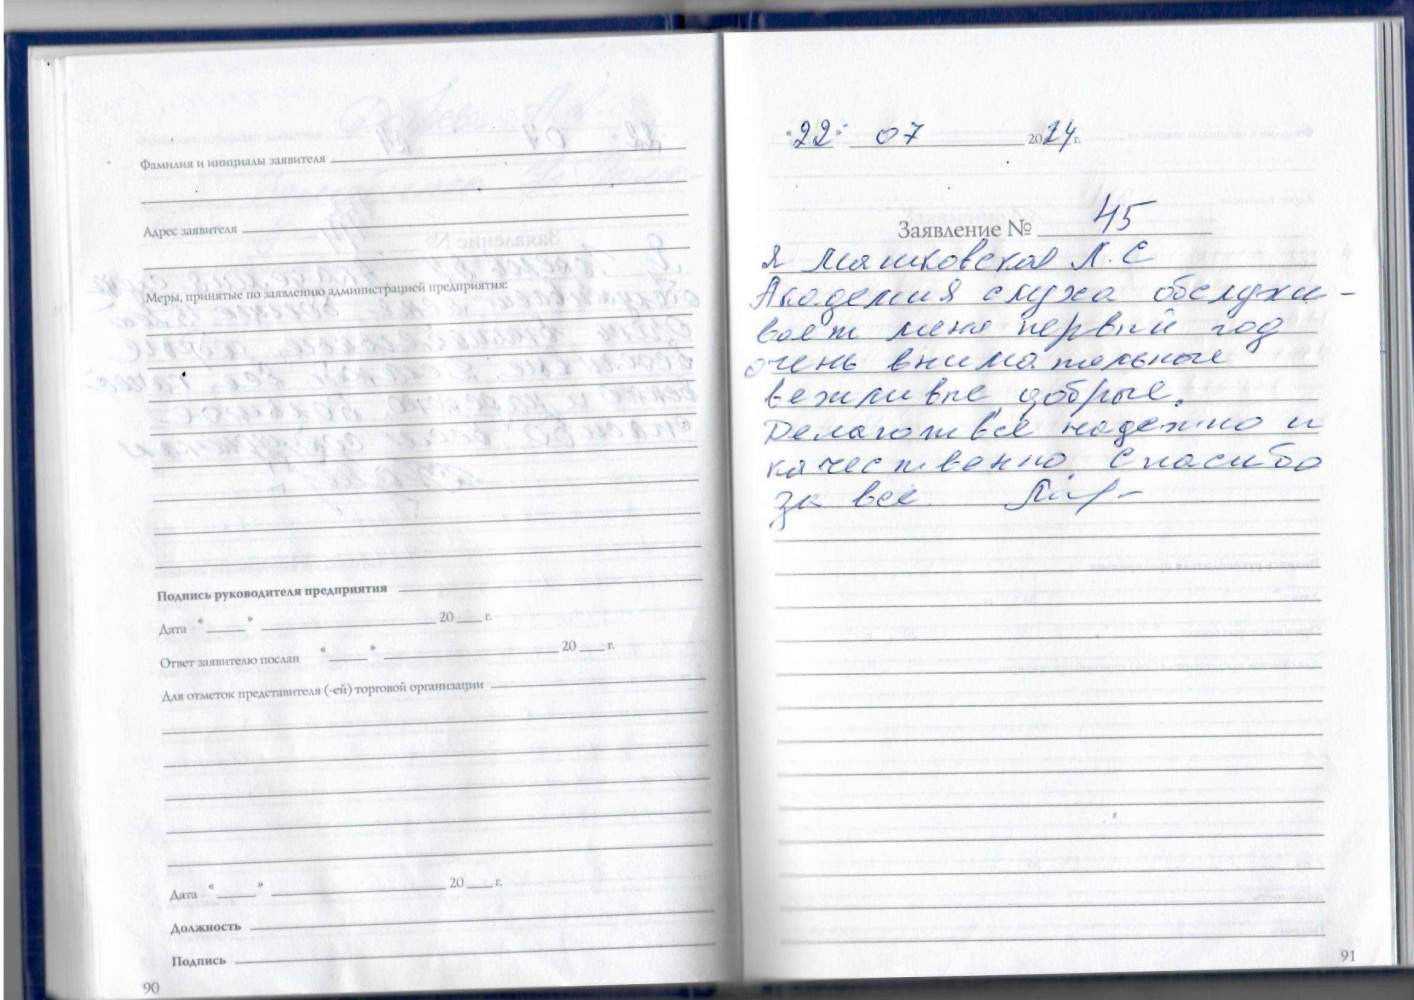 Фамилия и инициалы заявителя
Адрес заявителя
Меры, принятые по заявлению администрацией предприятия:
Подпись руководителя предприятия
Дата « » 20 г.
Ответ заявителю послан « » 20 г.
Для отметок представителя (-ей) торговой организации
Дата « » 20 г.
Должность
Подпись
90
"22" 07 2024г.
Заявление № 45
Я Машковская Л.С
Академия слуха обслужи-
вает меня первый год
очень внимательные
вежливые добрые.
Делают все надежно и
качественно Спасибо
за все
91